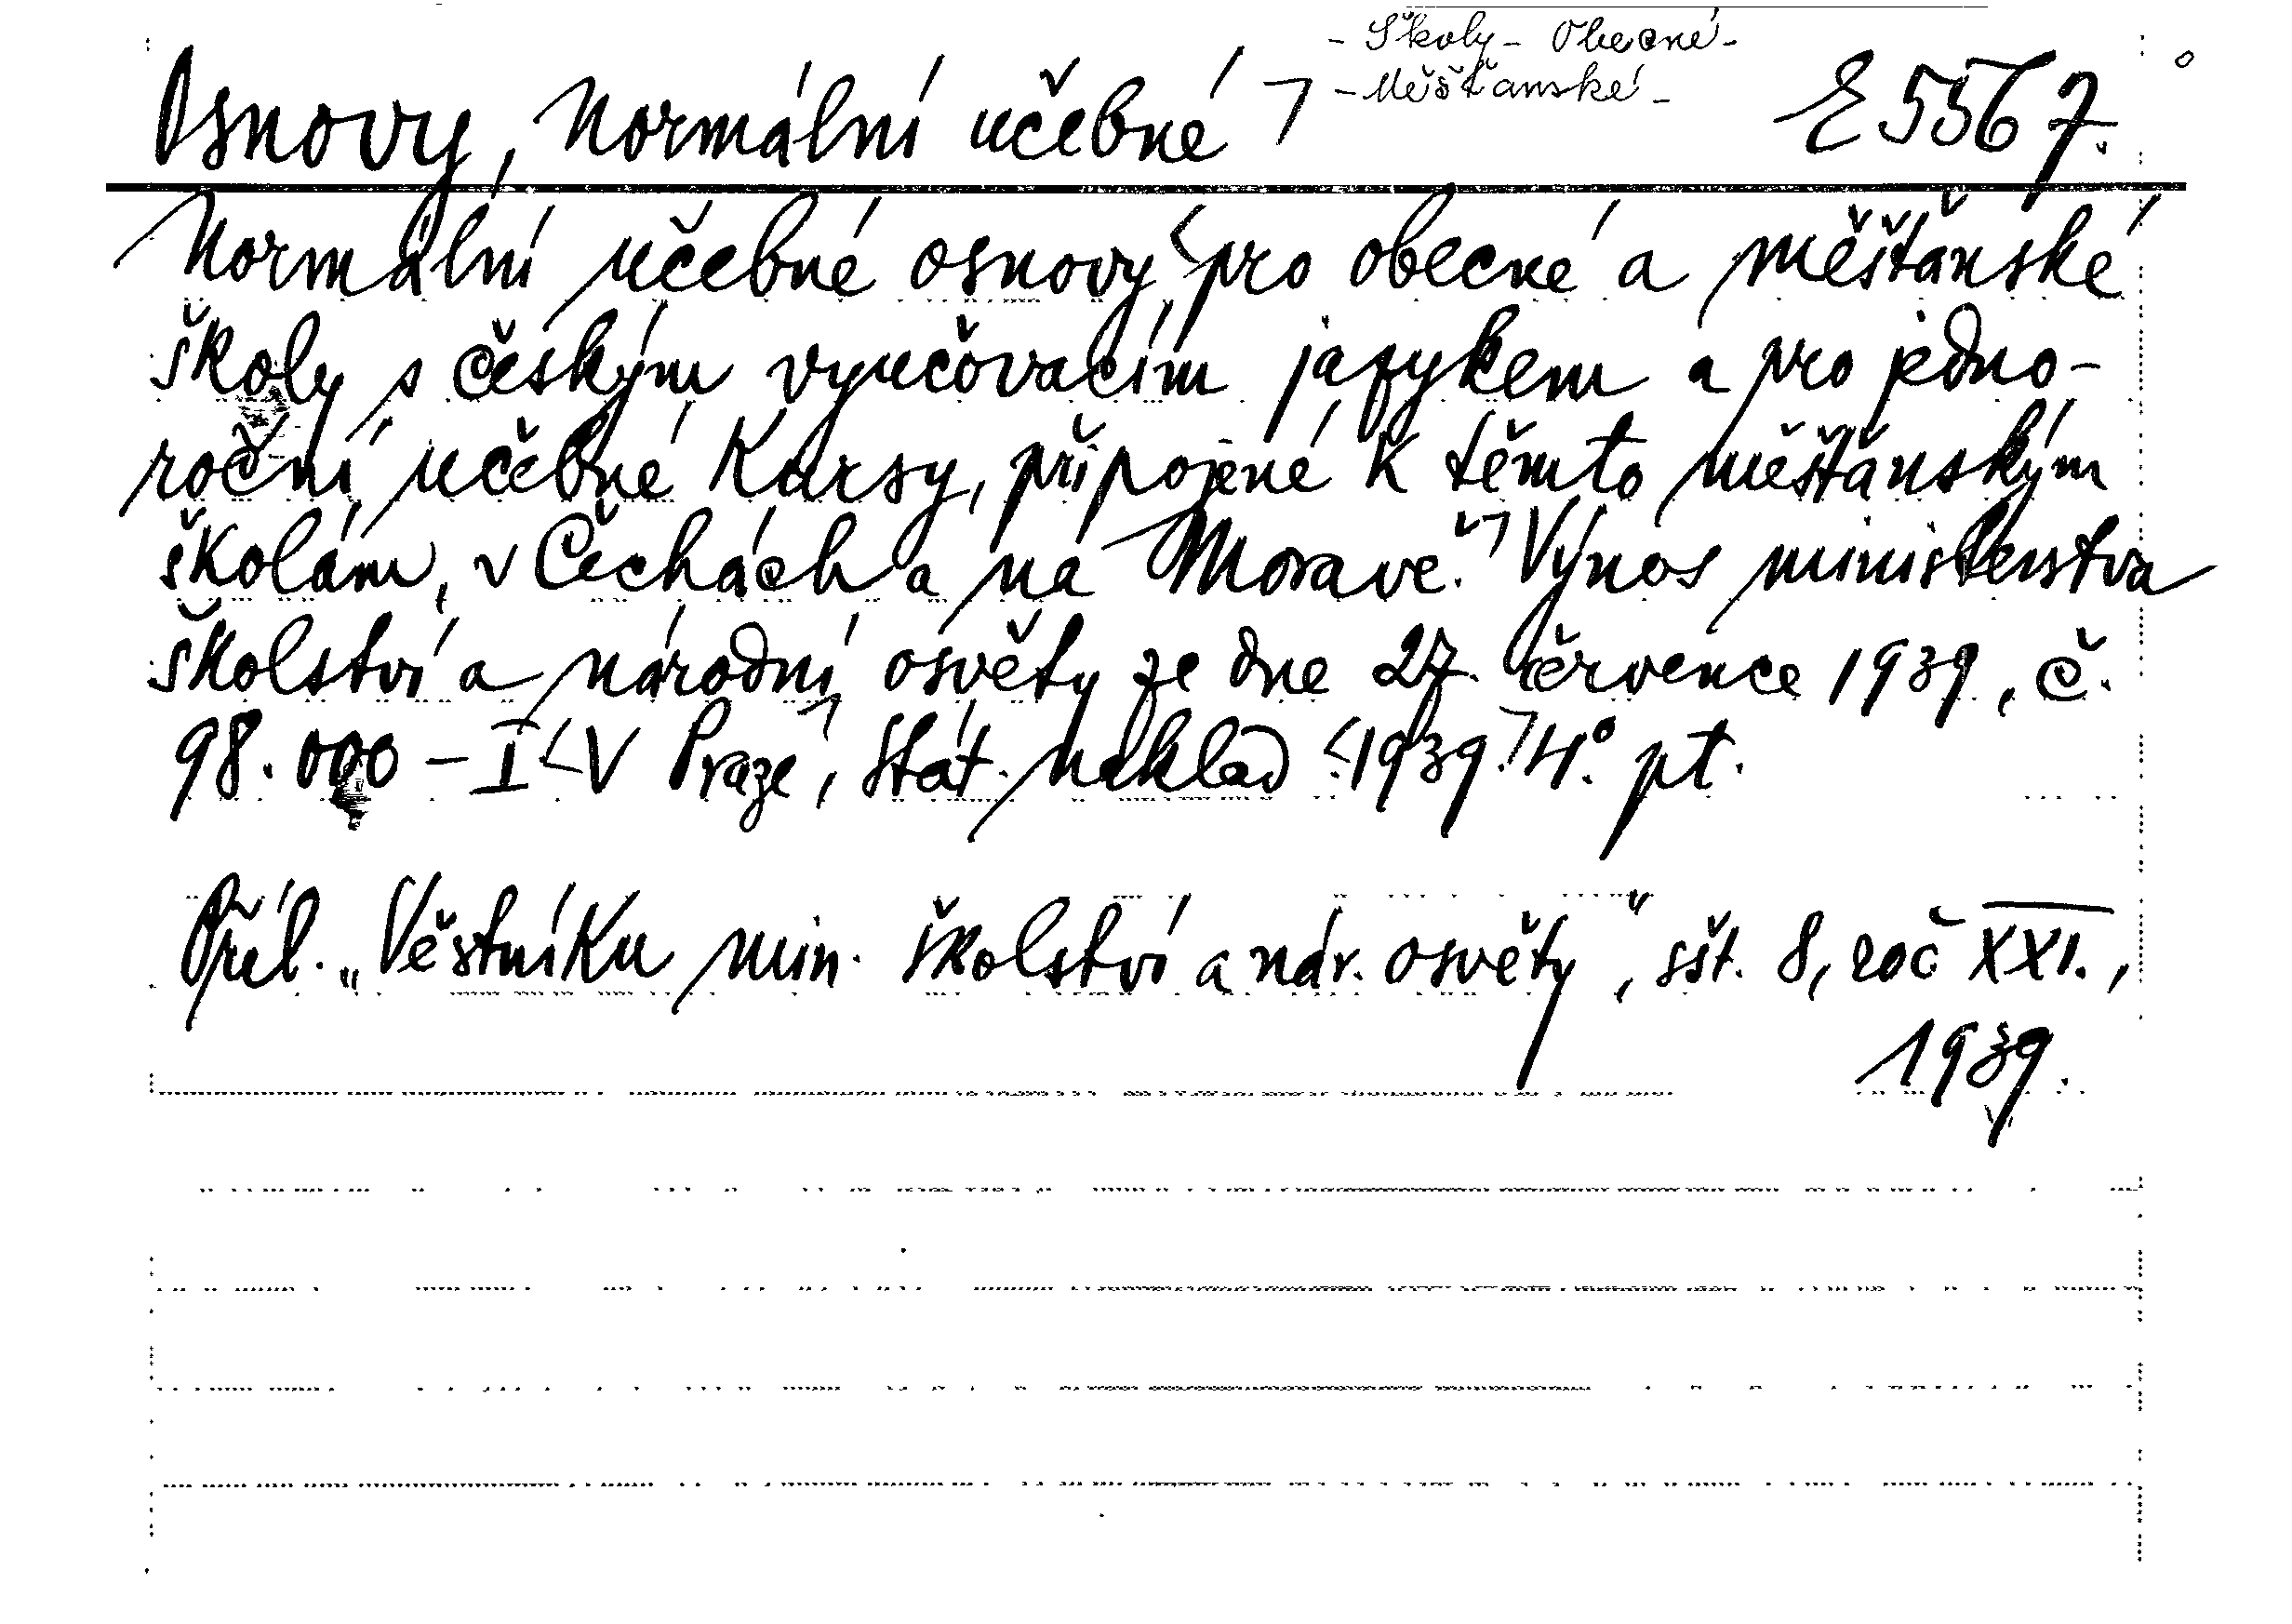 - Školy - Obecné -
Osnovy, Normální učebné ⌝ - Měšťanské - E 5567.
Normální učebné osnovy <pro obecné a měšťanské
školy s českým vyučovacím jazykem a pro jedno-
roční učebné kursy, připojené k těmto měšťanským
školám, v Čechách a na Moravě.⌝ Výnos ministerstva
školství a národní osvěty ze dne 27. července 1939, č.
98.000 - I <V Praze⌝, Stát. naklad <1939.⌝ 4°. pt.
Příl. „Věstníku min. školství a nár. osvěty", sšt. 8, roč XXI.,
1939.